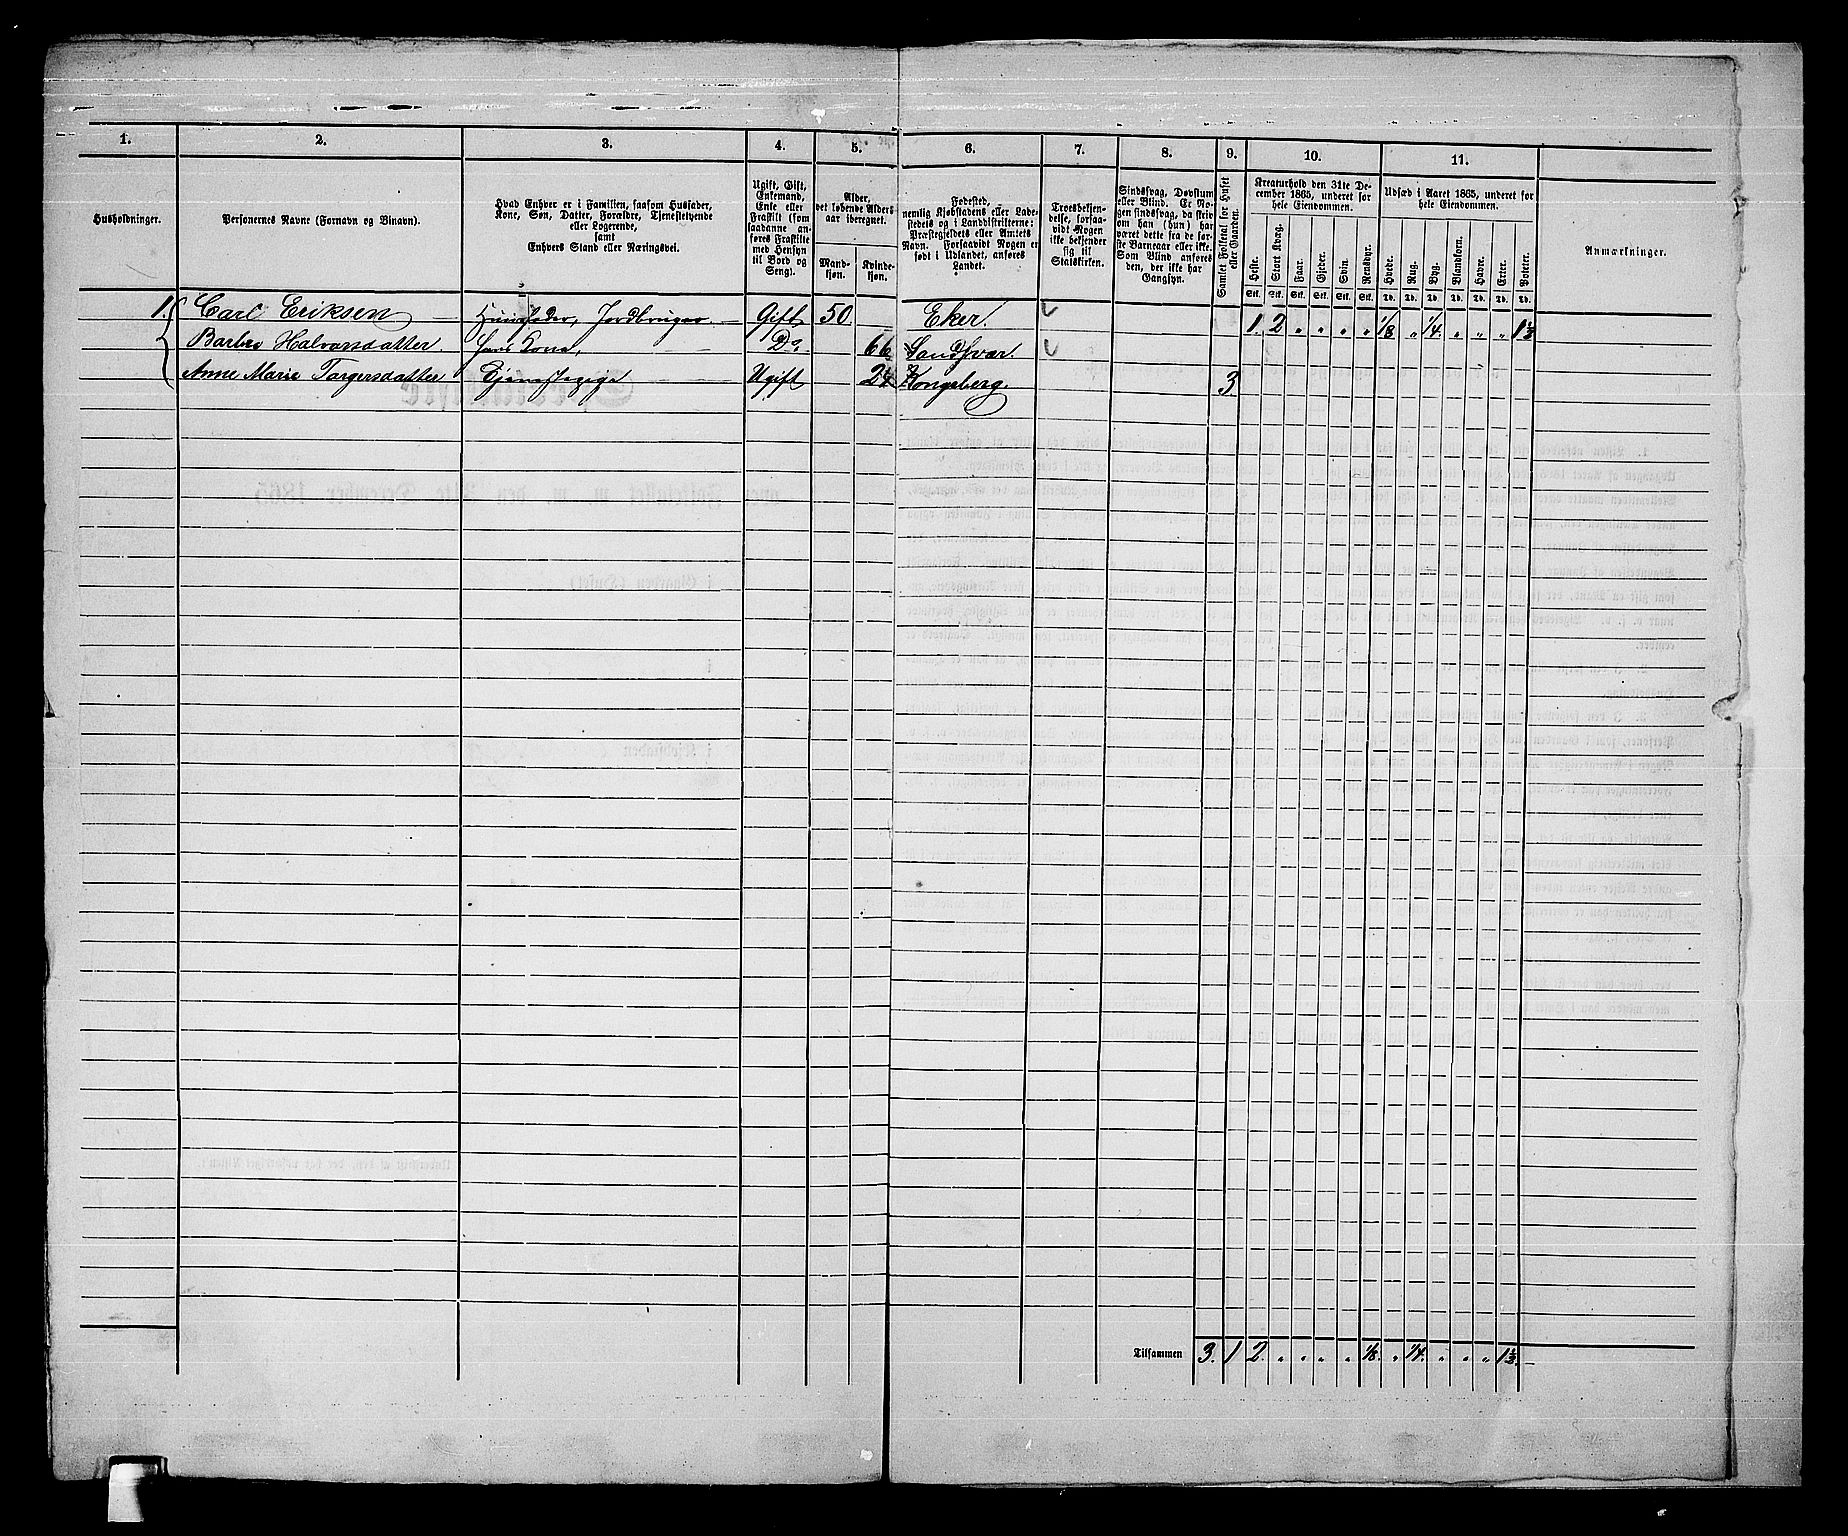 1. 2. 3. 4. 5. 6. 7. 8. 9. 10. 11.
Husholdninger.
Personernes Navne (Fornavn og Binavn).
Hvad Enhver er i Familien, saasom Husfader,
Kone, Søn, Datter, Forældre, Tjenestetyende
eller Logerende,
samt
Enhvers Stand eller Næringsvei.
Ugift, Gift,
Enkemand,
Enke eller
Fraskilt (som
saadanne an-
føres Fraskilte
med Hensyn
til Bord og
Seng).
Alder,
det løbende Alders-
aar iberegnet.
Mand-
kjøn.
Kvinde-
kjøn.
Fødested,
nemlig Kjøbstadens eller Lade-
stedets og i Landdistrikterne:
Præstegjældets eller Amtets
Navn. Forsaavidt Nogen er
født i Udlandet, anføres
Landet.
Troesbekjen-
delse, forsaa-
vidt Nogen
ikke bekjender
sig til
Statskirken.
Sindssvag, Døvstum
eller Blind. Er No-
gen sindssvag, da skriv
om han (hun) har
været dette fra de før-
ste Barneaar eller ikke.
Som Blind anføres
den, der ikke har
Gangsyn.
Samlet Folketal for Huset
eller Gaarden.
Kreaturhold den 31te De-
cember 1865, underet for
hele Eiendommen.
Heste. Stort Kvæg. Faar. Gjeder. Svin. Rensdyr.
Stk. Stk. Stk. Stk. Stk. Stk.
Udsæd i Aaret 1865, underet for
hele Eiendommen.
Hvede. Rug. Byg. Blandkorn. Havre. Erter. Poteter.
Td. Td. Td. Td. Td. Td. Td.
Anmærkninger.
1. Carl Eriksen Huusfader, Jordbruger. Gift 50 Eker. 1. 2 „ „ „ „ 1/8 „ 1/4 „ „ „ 1 1/2
Barbro Halvarsdatter. Hans Kone, Do 66 Sandsvær.
Anne Marie Targersdatter Tjenestepige Ugift 24 Kongsberg. 3
Tilsammen 3. 1 2. „ „ „ „ 1/8. „ 1/4. „ „ „ 1 1/2.